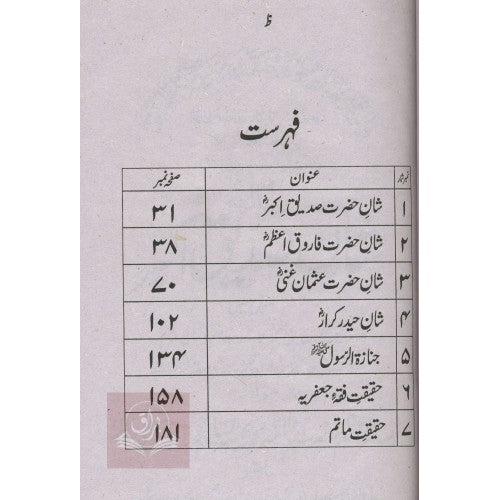 ظ
فہرست
نمبر شمار عنوان صفحہ نمبر
۱ شانِ حضرت صدیق اکبرؓ ۳۱
۲ شانِ حضرت فاروق اعظمؓ ۳۸
۳ شانِ حضرت عثمان غنیؓ ۷۰
۴ شانِ حیدر کرارؓ ۱۰۲
۵ جنازۃ الرسول ﷺ ۱۳۴
۶ حقیقت فقہ جعفریہ ۱۵۸
۷ حقیقت ماتم ۱۸۱